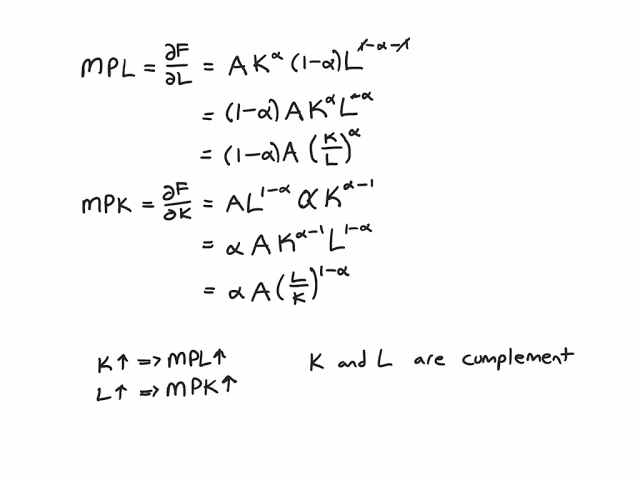 MPL = ∂F/∂L = A K^α (1-α) L^(1-α-1)
= (1-α) A K^α L^-α
= (1-α) A (K/L)^α
MPK = ∂F/∂K = A L^(1-α) α K^(α-1)
= α A K^(α-1) L^(1-α)
= α A (L/K)^(1-α)
K↑ => MPL↑ K and L are complement
L↑ => MPK↑